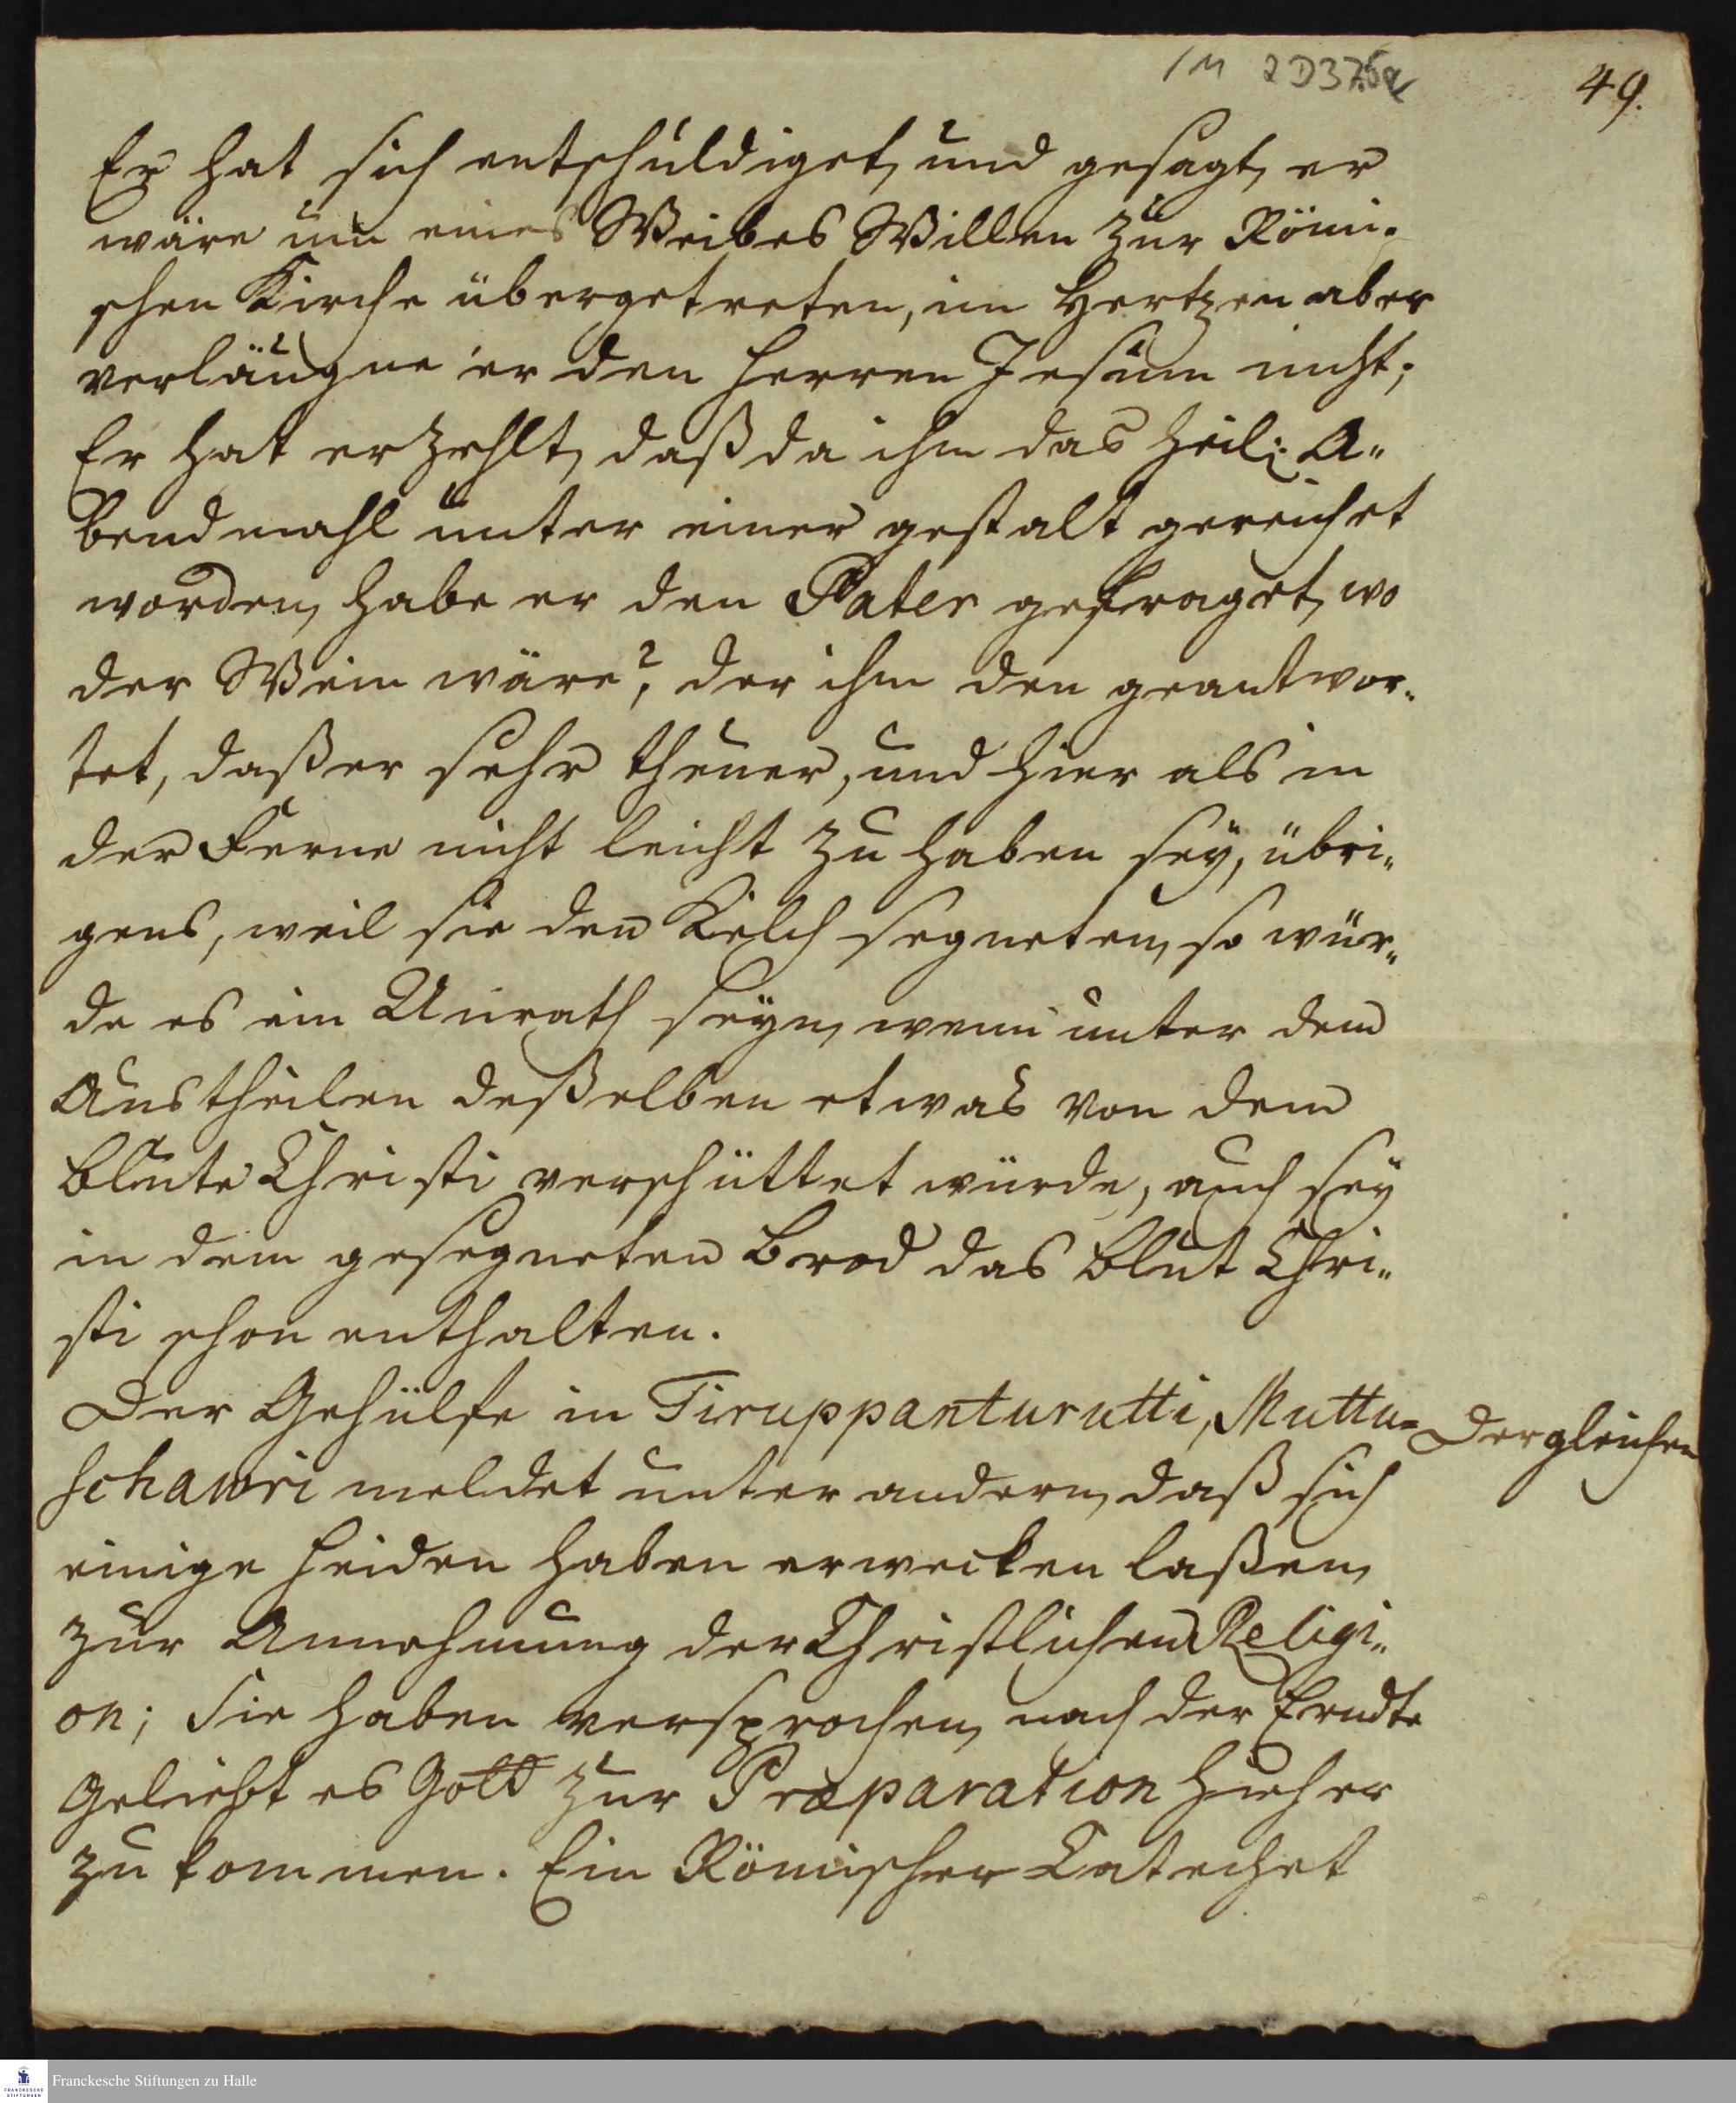 1 M 2 D 37.5a
49.
Er hat sich entschuldiget, und gesagt, er
wäre um eines Weibes Willen zur Römi-
schen Kirche übergetreten, im Hertzen aber
verläugne er den Herren Jesum nicht;
Er hat erzehlt, daß da ihm das Heil: A-
bendmahl unter einer gestalt gereichet
worden, habe er den Pater gefraget, wo
der Wein wäre?, der ihm den geantwor-
tet, daß er sehr theuer, und hier als in
der Ferne nicht leicht zu haben sey, übri-
gens, weil sie den Kelch segneten, so wür-
de es ein Unrath seyn, wenn unter dem
Austheilen deßelben etwas von dem
Blute Christi verschüttet würde, auch sey
in dem gesegneten Brod das Blut Chri-
sti schon enthalten.
Der Gehülfe in Tiruppanturutti, Muttu-
schawri meldet unter andern, daß sich
Dergleichen
einige Heiden haben erwecken laßen,
zur Annehmung der Christlichen Religi-
on; Sie haben versprochen, nach der Erndte
Geliebt es Gott zur Præparation hieher
zu kommen. Ein Römischer Catechet
Franckesche Stiftungen zu Halle